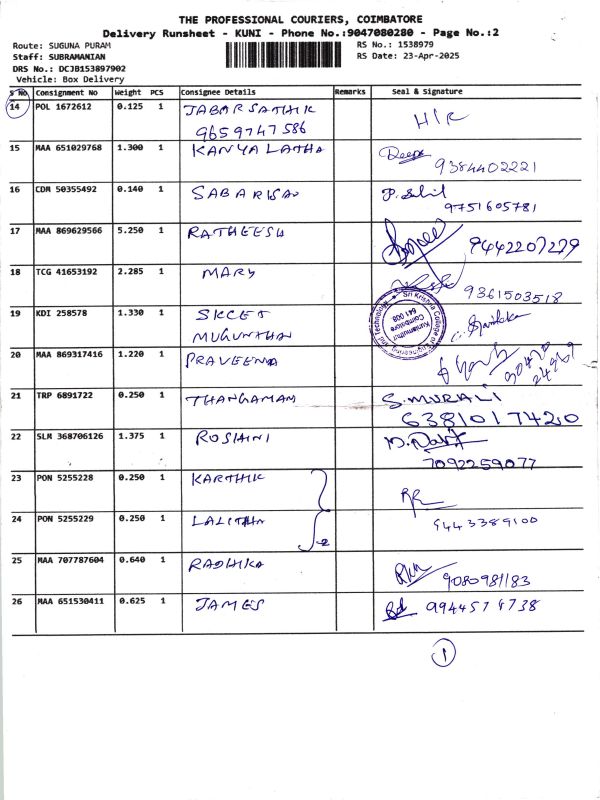 THE PROFESSIONAL COURIERS, COIMBATORE
Delivery Runsheet - KUNI - Phone No.:9047080280 - Page No.:2
Route: SUGUNA PURAM
RS No.: 1538979
Staff: SUBRAMANIAN
RS Date: 23-Apr-2025
DRS No.: DCJB153897902
Vehicle: Box Delivery
S No. Consignment No Weight PCS Consignee Details Remarks Seal & Signature
14 POL 1672612 0.125 1 JABAR SATHIK H/R
9659747586
15 MAA 651029768 1.300 1 KANYALATHA Deepa
9384402221
16 CDM 50355492 0.140 1 SABARISAN
9751605781
17 MAA 869629566 5.250 1 RATHEESH 9442207279
18 TCG 41653192 2.285 1 MARY
9361503518
19 KDI 258578 1.330 1 SKCET
MUGUNTHAN
Sri Krishna College of Engineering and Technology
Kuniamuthur
Coimbatore
641 008
20 MAA 869317416 1.220 1 PRAVEENA
21 TRP 6891722 0.250 1 THANGAMAM S. MURALI
6381017420
22 SLM 368706126 1.375 1 ROSHINI
7092259077
23 PON 5255228 0.250 1 KARTHIK
24 PON 5255229 0.250 1 LALITHA 2
9443389100
25 MAA 707787604 0.640 1 RADHIKA
9080981183
26 MAA 651530411 0.625 1 JAMES
1